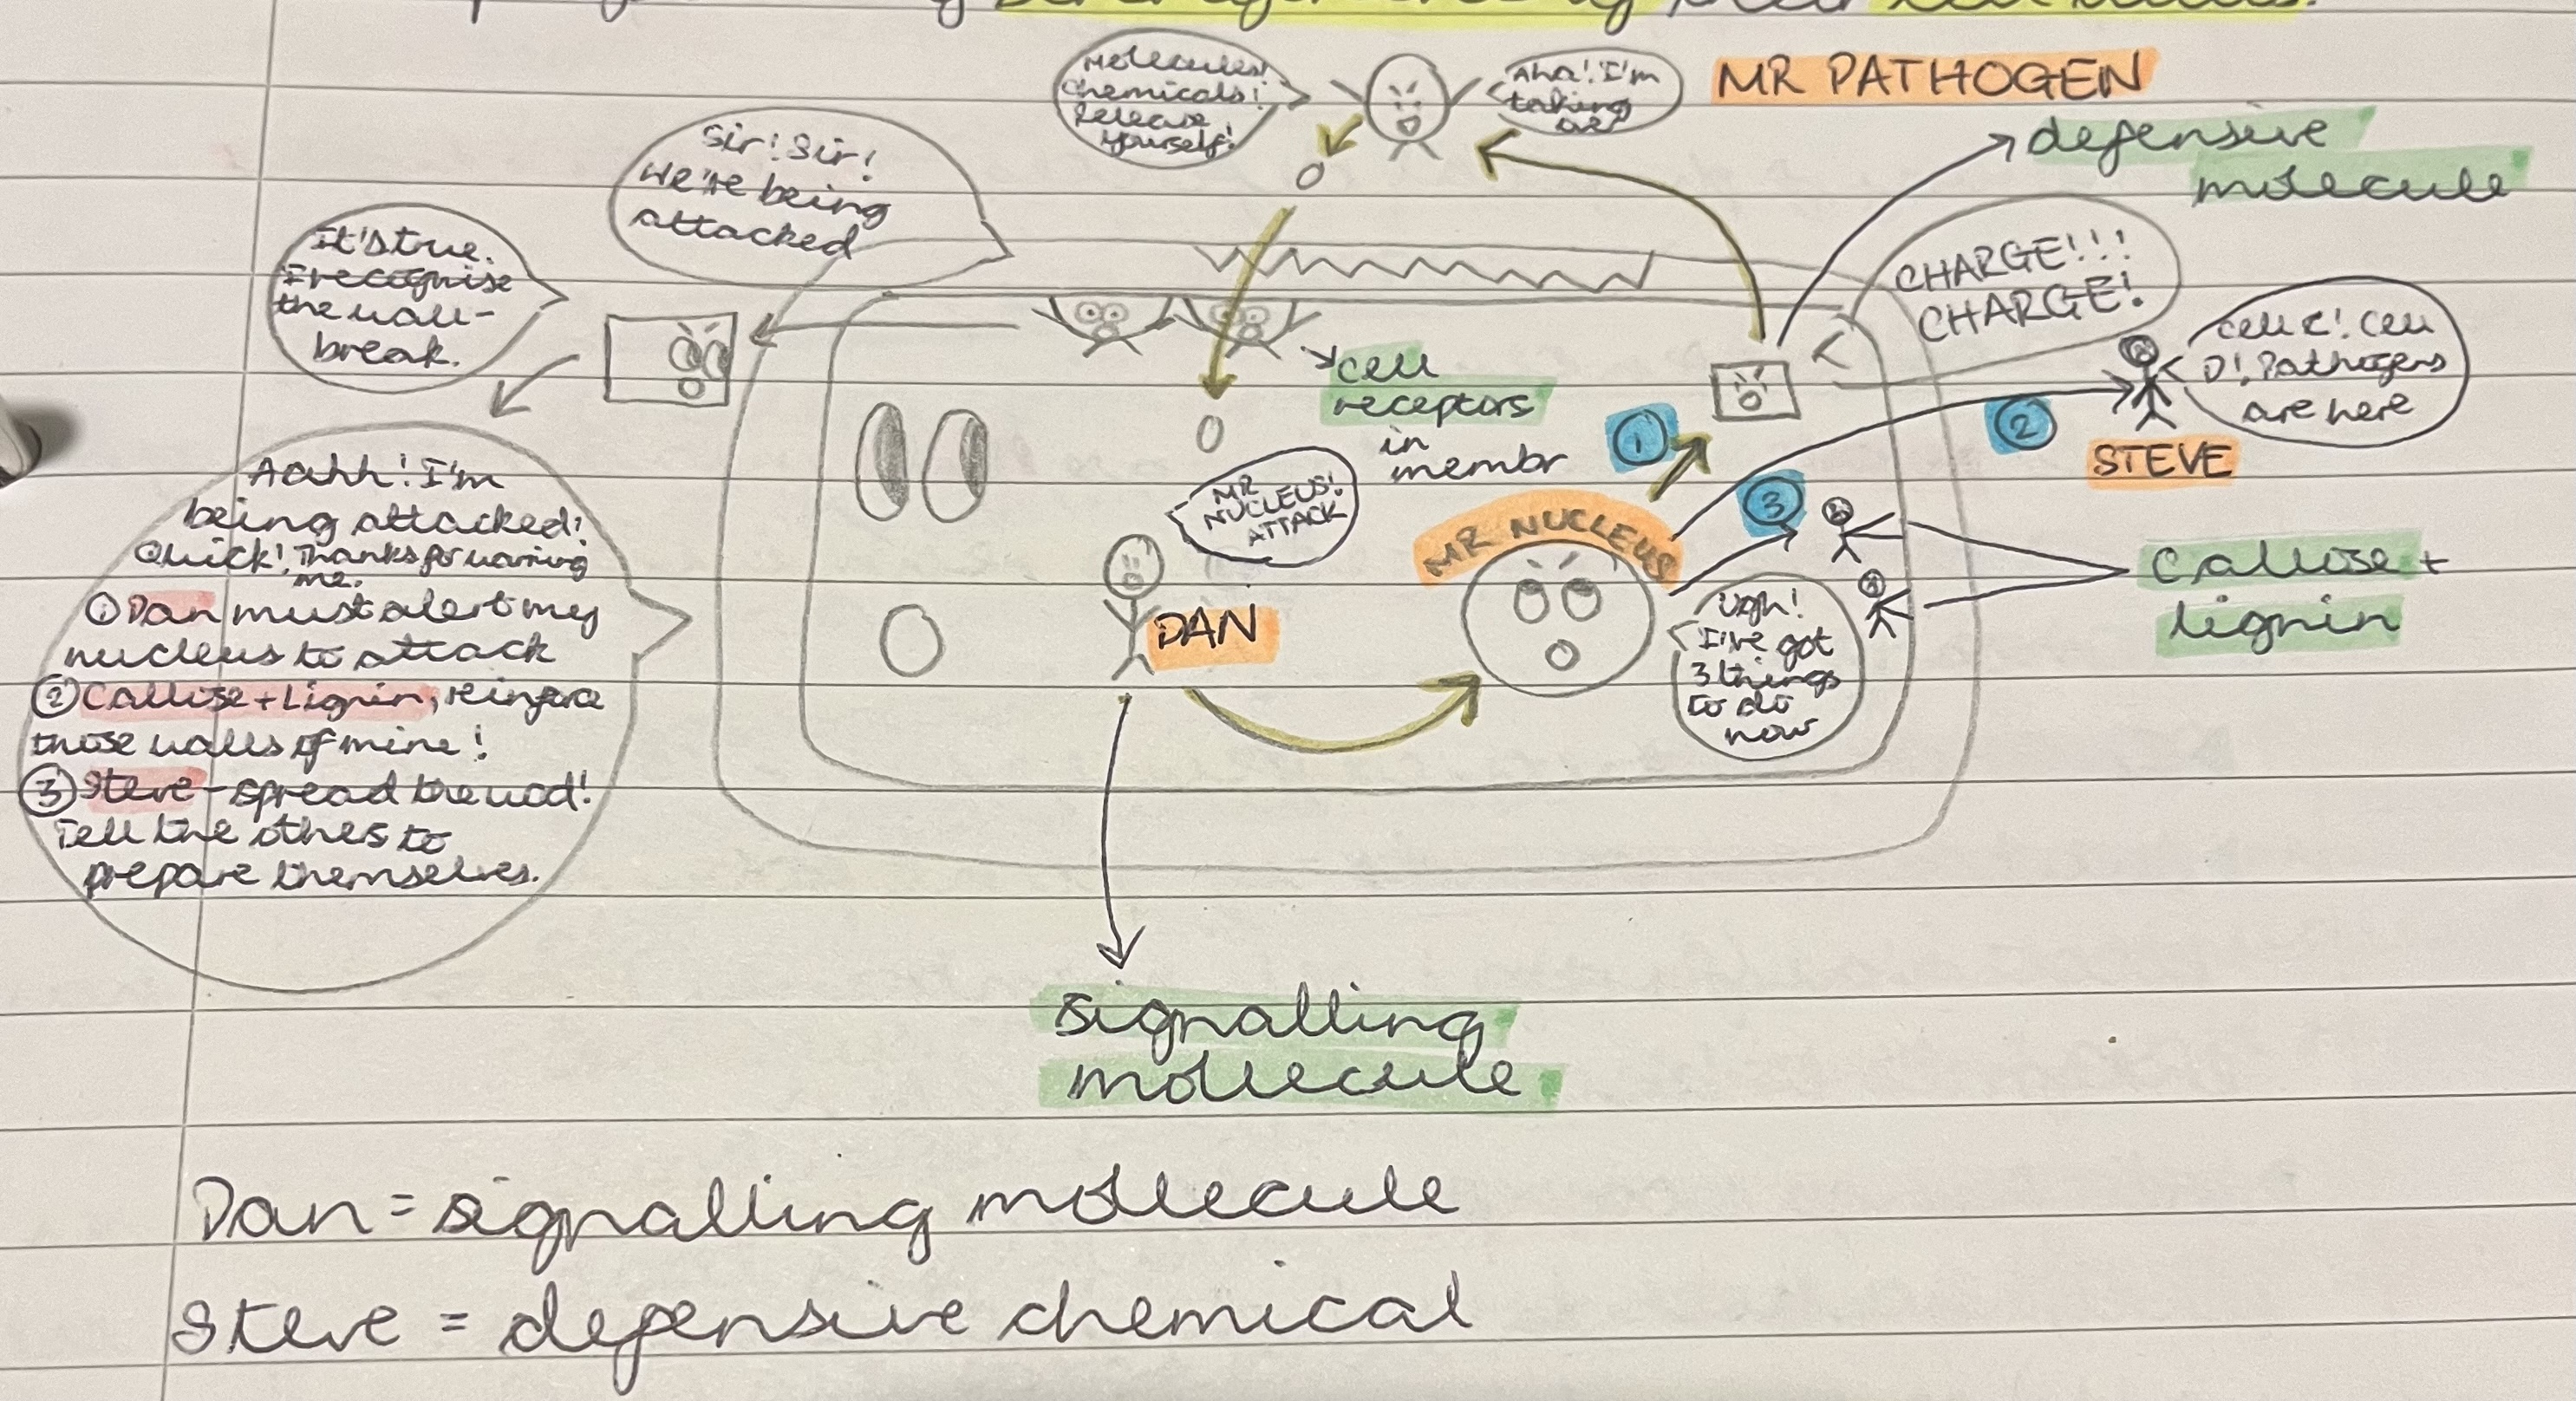 Molecules!
Chemicals!
Release
yourself!
Aha! I'm
taking
over
MR PATHOGEN
defensive
molecule
Sir! Sir!
We're being
attacked
It's true.
I recognise
the wall-
break.
CHARGE!!!
CHARGE!
Cell C! Cell
D! Pathogens
are here
STEVE
cell
receptors
in
membr
1
2
3
MR
NUCLEUS!
ATTACK
MR NUCLEUS
DAN
Ugh!
I've got
3 things
to do
now
Callose +
lignin
Aahh! I'm
being attacked!
Quick! Thanks for warning
me.
① Dan must alert my
nucleus to attack
② Callose + Lignin, reinforce
those walls of mine!
③ Steve - spread the word!
Tell the others to
prepare themselves.
signalling
molecule
Dan = signalling molecule
Steve = defensive chemical